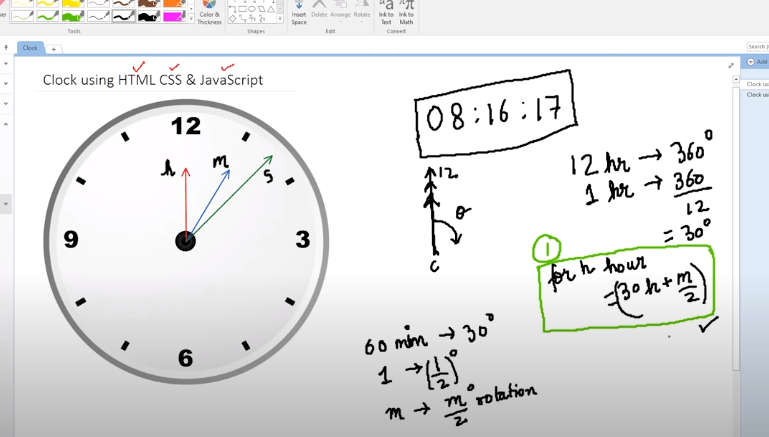 Color &
Thickness
Insert
Space
Delete
Arrange
Rotate
Ink to
Text
Ink to
Math
Tools
Shapes
Edit
Convert
Clock
Search (
Add
Clock us
Clock usi
Clock using HTML CSS & JavaScript
12
3
6
9
h
m
s
08:16:17
12
θ
C
12 hr → 360°
1 hr → 360
12
= 30°
1
for h hour
= (30 h + m/2)
60 min → 30°
1 → (1/2)°
m → m/2° rotation